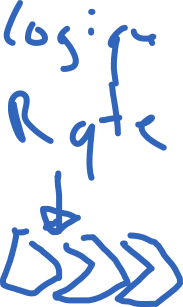 logique
R q t e